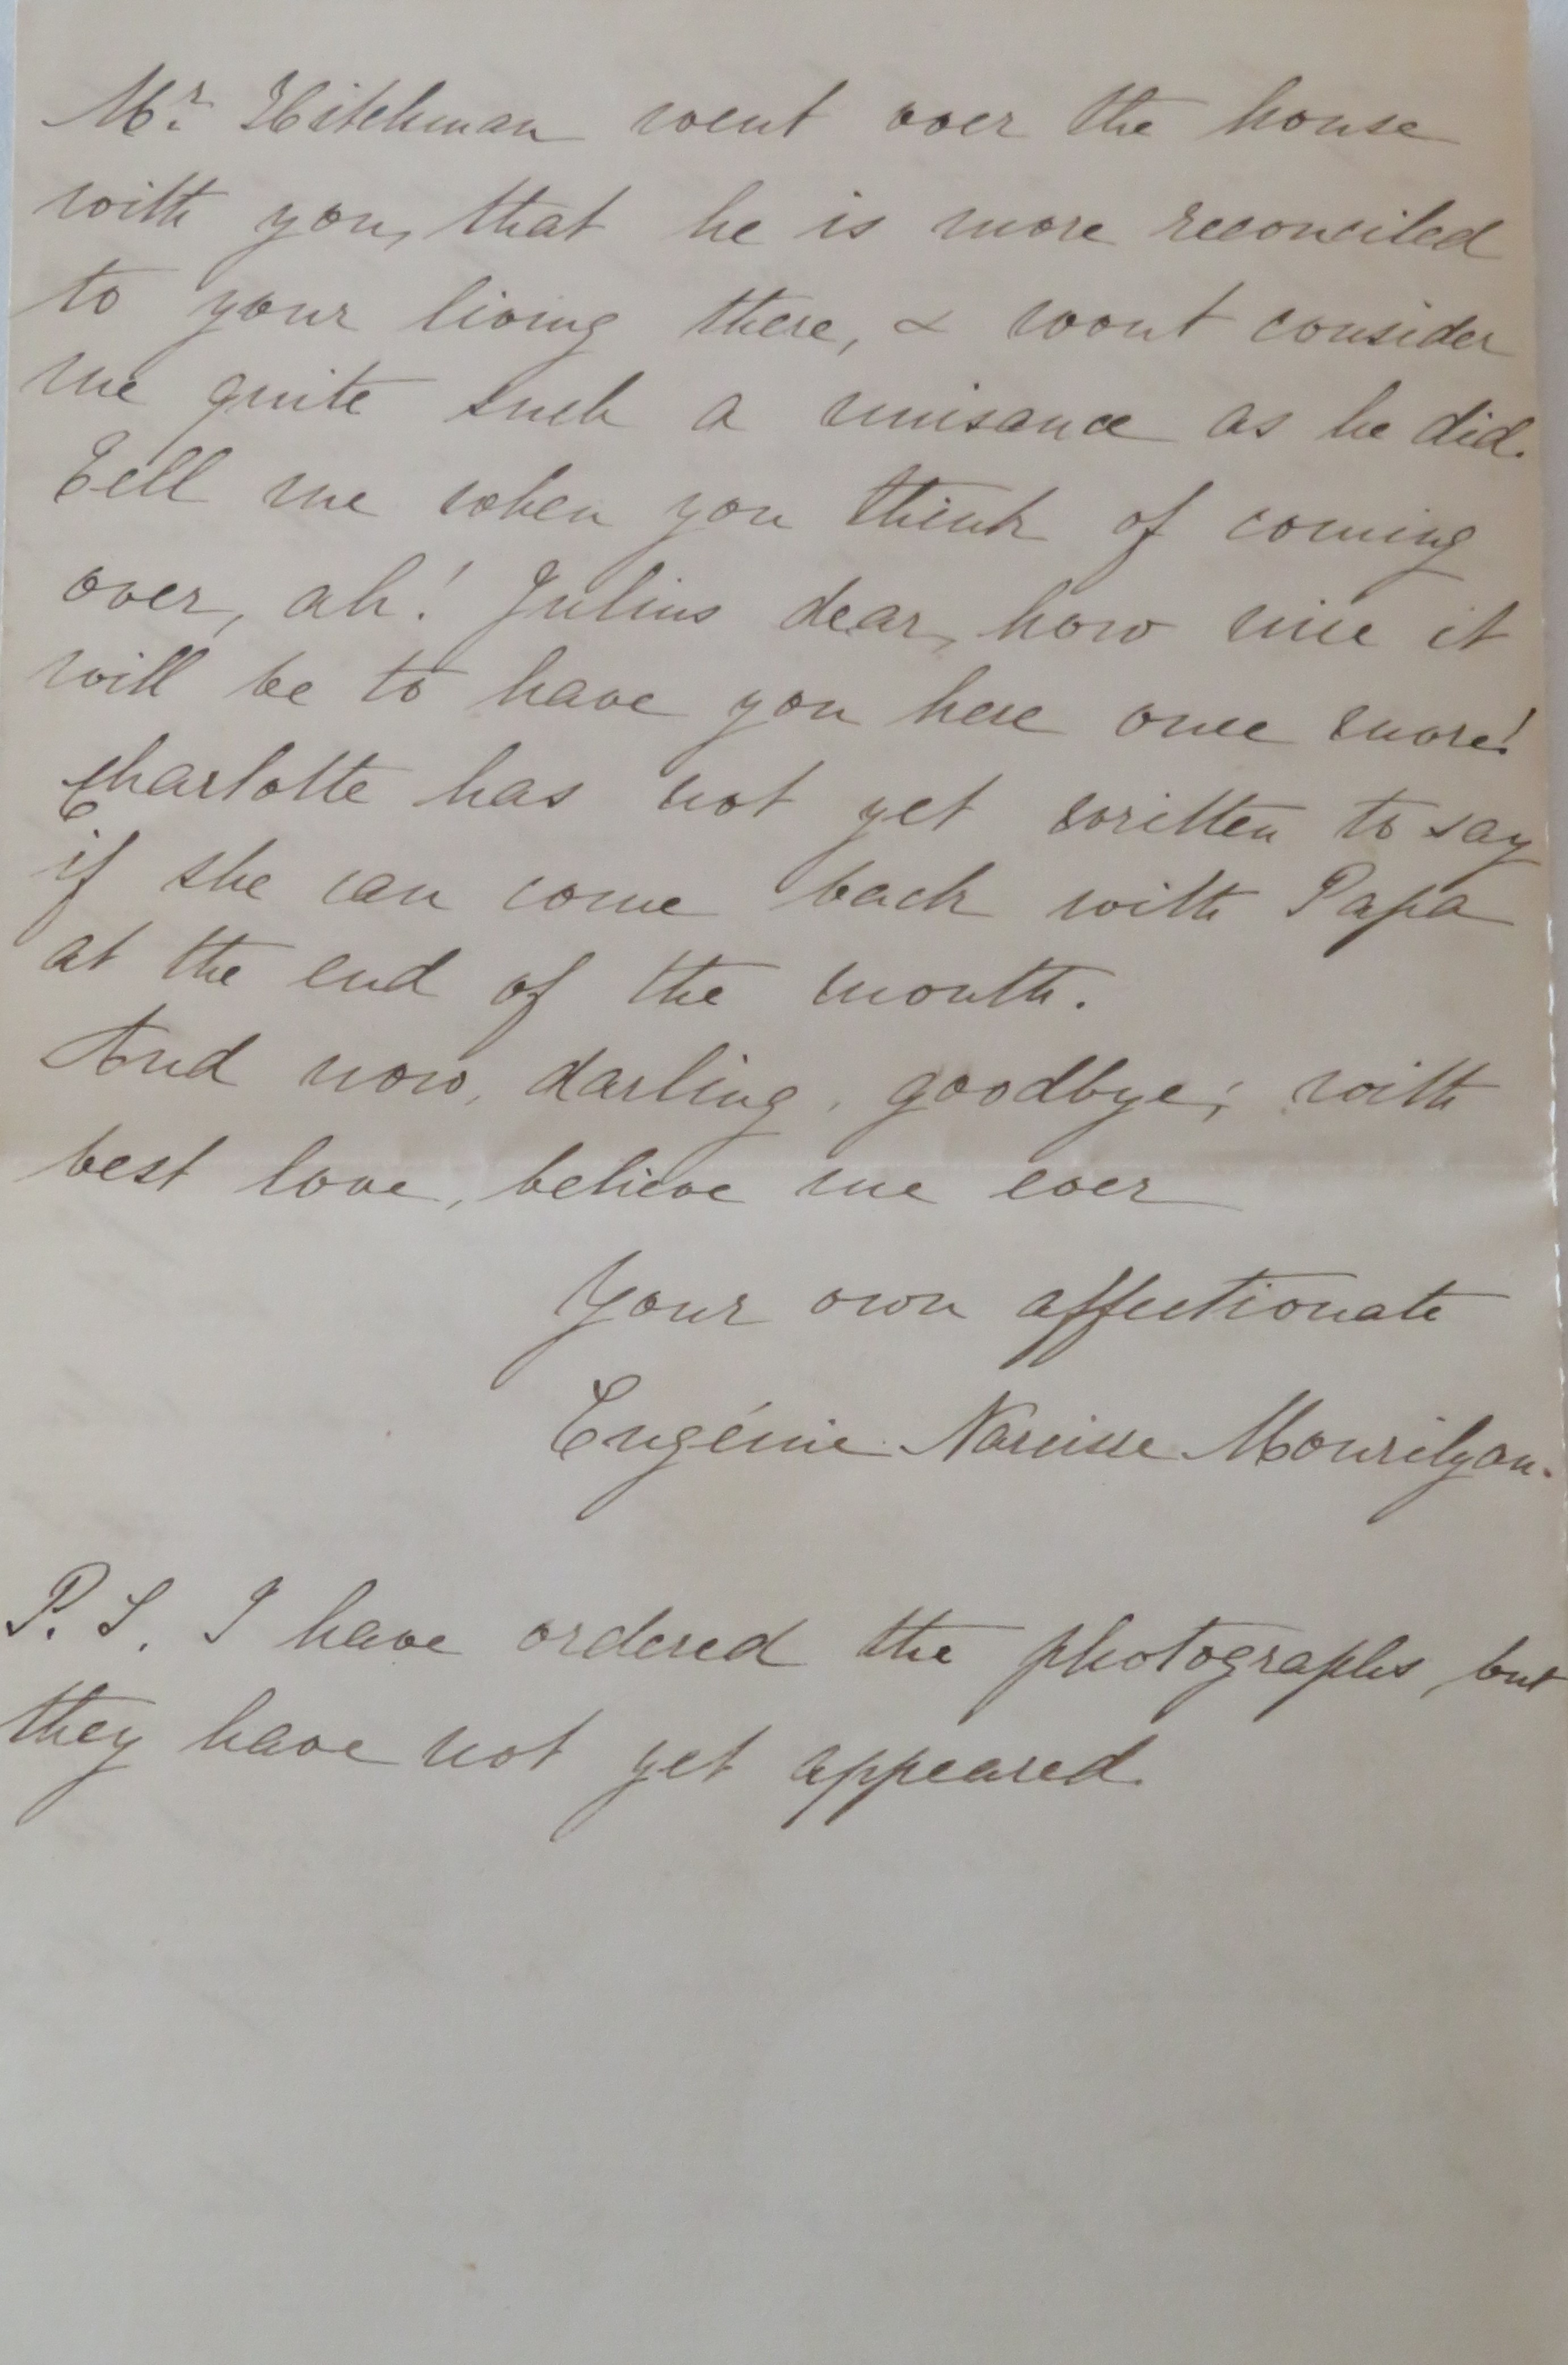 Mr. Hitchman went over the house
with you, that he is more reconciled
to your living there, & wont consider
me quite such a nuisance as he did.
Tell me when you think of coming
over, ah! Julius dear, how nice it
will be to have you here once more!
Charlotte has not yet written to say
if she can come back with Papa
at the end of the month.
And now, darling, goodbye; with
best love, believe me ever
Your own affectionate
Eugénie Narcisse Mourilyan.
P. S. I have ordered the photographs, but
they have not yet appeared.